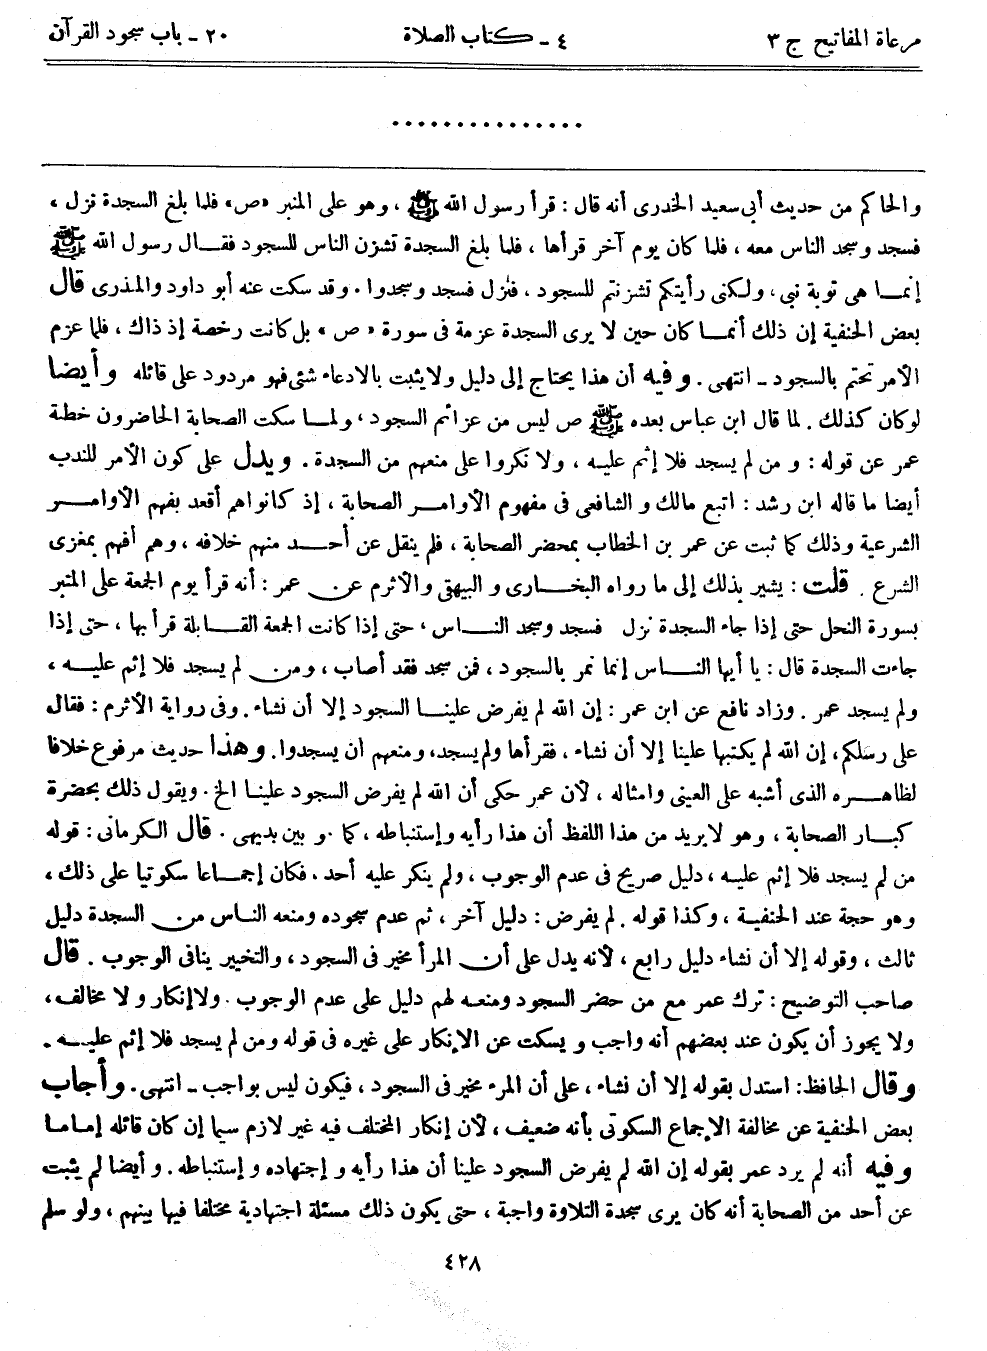 مرعاة المفاتيح ج ٣
٤ ـ كتاب الصلاة
٢٠ ـ باب سجود القرآن
...............
والحاكم من حديث أبى سعيد الخدرى أنه قال : قرأ رسول الله ﷺ ، وهو على المنبر «ص» فلما بلغ السجدة نزل ،
فسجد وسجد الناس معه ، فلما كان يوم آخر قرأها ، فلما بلغ السجدة تشزن الناس للسجود فقـال رسول الله ﷺ
إنمـا هى توبة نبى ، ولكنى رأيتكم تشزنتم للسجود ، فنزل فسجد وسجدوا . وقد سكت عنه أبو داود والمنذرى قال
بعض الحنفية إن ذلك أنمـا كان حين لا يرى السجدة عزمة فى سورة « ص » بل كانت رخصة إذ ذاك ، فلما عزم
الأمر تحتم بالسجود ـ انتهى . وفيه أن هذا يحتاج إلى دليل ولا يثبت بالادعاء شئى فهو مردود على قائله وأيضا
لو كان كذلك . لما قال ابن عباس بعده ﷺ ص ليس من عزائم السجود ، ولمـا سكت الصحابة الحاضرون خطبة
عمر عن قوله : و من لم يسجد فلا إثم عليـه ، ولا نكروا على منعهم من السجدة . ويدل على كون الأمر للندب
أيضا ما قاله ابن رشد : اتبع مالك و الشافعى فى مفهوم الأوامـر الصحابة ، إذ كانوا هم أقعد بفهم الأوامـر
الشرعية وذلك كما ثبت عن عمر بن الخطاب بمحضر الصحابة ، فلم ينقل عن أحـد منهم خلافه ، وهم أفهم بمغزى
الشرع . قلت : يشير بذلك إلى ما رواه البخـارى و البيهقى والأثرم عن عمر : أنه قرأ يوم الجمعة على المنبر
بسورة النحل حتى إذا جاء السجدة نزل فسجد وسجد النـاس ، حتى إذا كانت الجمعة القـابلة قرأ بها ، حتى إذا
جاءت السجدة قال : يا أيها النـاس إنما نمر بالسجود ، فمن سجد فقد أصاب ، ومن لم يسجد فلا إثم عليـه ،
ولم يسجد عمر . وزاد نافع عن ابن عمر : إن الله لم يفرض علينـا السجود إلا أن نشاء . وفى رواية الأثرم : فقال
على رسلكم، إن الله لم يكتبها علينا إلا أن نشاء ، فقرأها ولم يسجد، ومنعهم ان يسجدوا. وهذا حديث مرفوع خلافا
لظاهـره الذى أشبه على العينى وامثاله ، لأن عمر حكى أن الله لم يفرض السجود علينـا الخ . ويقول ذلك بحضرة
كبـار الصحابة ، وهو لا يريد من هذا اللفظ أن هذا رأيه وإستنباطه ، كما هو بين بديهى . قال الكرمانى : قوله
من لم يسجد فلا إثم عليـه ، دليل صريح فى عدم الوجوب ، ولم ينكر عليه أحد . فكان إجمـاعا سكوتيا على ذلك ،
وهو حجة عند الحنفيـة ، وكذا قوله . لم يفرض : دليل آخر ، ثم عدم سجوده ومنعه الناس من السجدة دليل
ثالث ، وقوله إلا أن نشاء دليل رابع ، لأنه يدل على أن المرأ مخير فى السجود ، والتخيير ينافى الوجوب . قال
صاحب التوضيح : ترك عمر مع من حضر السجود ومنعـه لهم دليل على عدم الوجوب . ولا إنكار و لا مخالف،
ولا يجوز أن يكون عند بعضهم أنه واجب و يسكت عن الإنكار على غيره فى قوله ومن لم يسجد فلا إثم عليـه .
وقال الحافظ: استدل بقوله إلا أن نشاء ، على أن المرء مخير فى السجود ، فيكون ليس بواجب ـ انتهى. وأجاب
بعض الحنفية عن مخالفة الإجماع السكوتى بأنه ضعيف ، لأن إنكار المختلف فيه غير لازم سيما إن كان قائله إماما
وفيه أنه لم يرد عمر بقوله إن الله لم يفرض السجود علينا أن هذا رأيه و إجتهاده و إستنباطه . و أيضا لم يثبت
عن أحد من الصحابة أنه كان يرى سجدة التلاوة واجبة ، حتى يكون ذلك مسئلة اجتهادية مختلفا فيها بينهم ، ولو سلم
٤٢٨